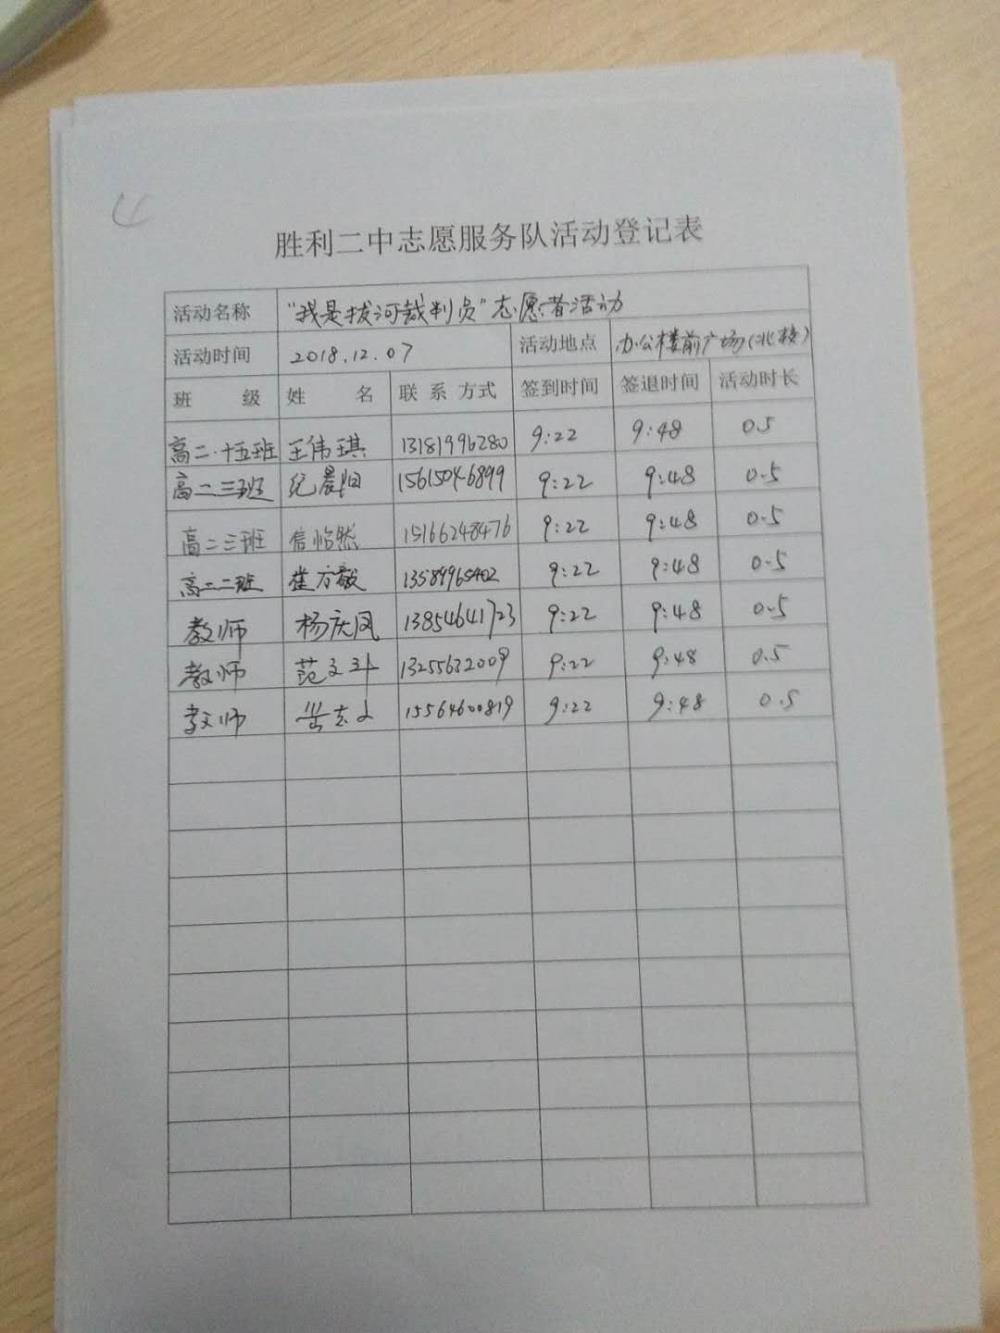 胜利二中志愿服务队活动登记表
活动名称 "我是拔河裁判员"志愿者活动
活动时间 2018.12.07 活动地点 办公楼前广场(北楼)
班 级 姓 名 联系方式 签到时间 签退时间 活动时长
高二·十五班 王伟琪 13181996280 9:22 9:48 0.5
高二三班 纪晨阳 15615046899 9:22 9:48 0.5
高二三班 信怡然 15166248476 9:22 9:48 0.5
高二二班 崔方毅 13589965402 9:22 9:48 0.5
教师 杨庆凤 13854641723 9:22 9:48 0.5
教师 范文 13255632009 9:22 9:48 0.5
教师 15564600819 9:22 9:48 0.5